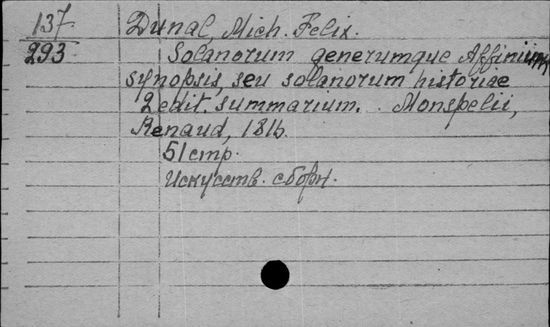 137
293
Dunal, Mich. Felix.
Solanorum generumque Affinium
synopsis, seu solanorum historiae
2 edit. summarium. Monspelii,
Renaud, 1816.
51 стр.
Искусств. сборн.